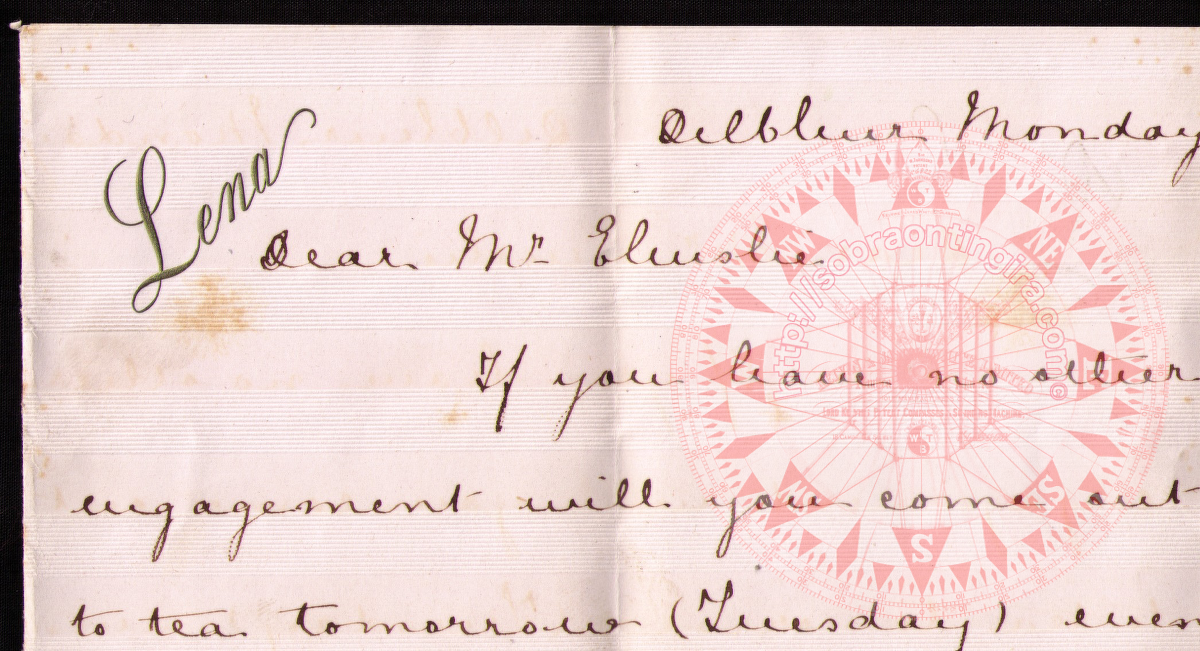 Lena
Monday
Dear Mr. Elmslie
If you have no other
engagement will you come out
to tea tomorrow (Tuesday) even
http://sobraontingira.com
NE
E
SE
S